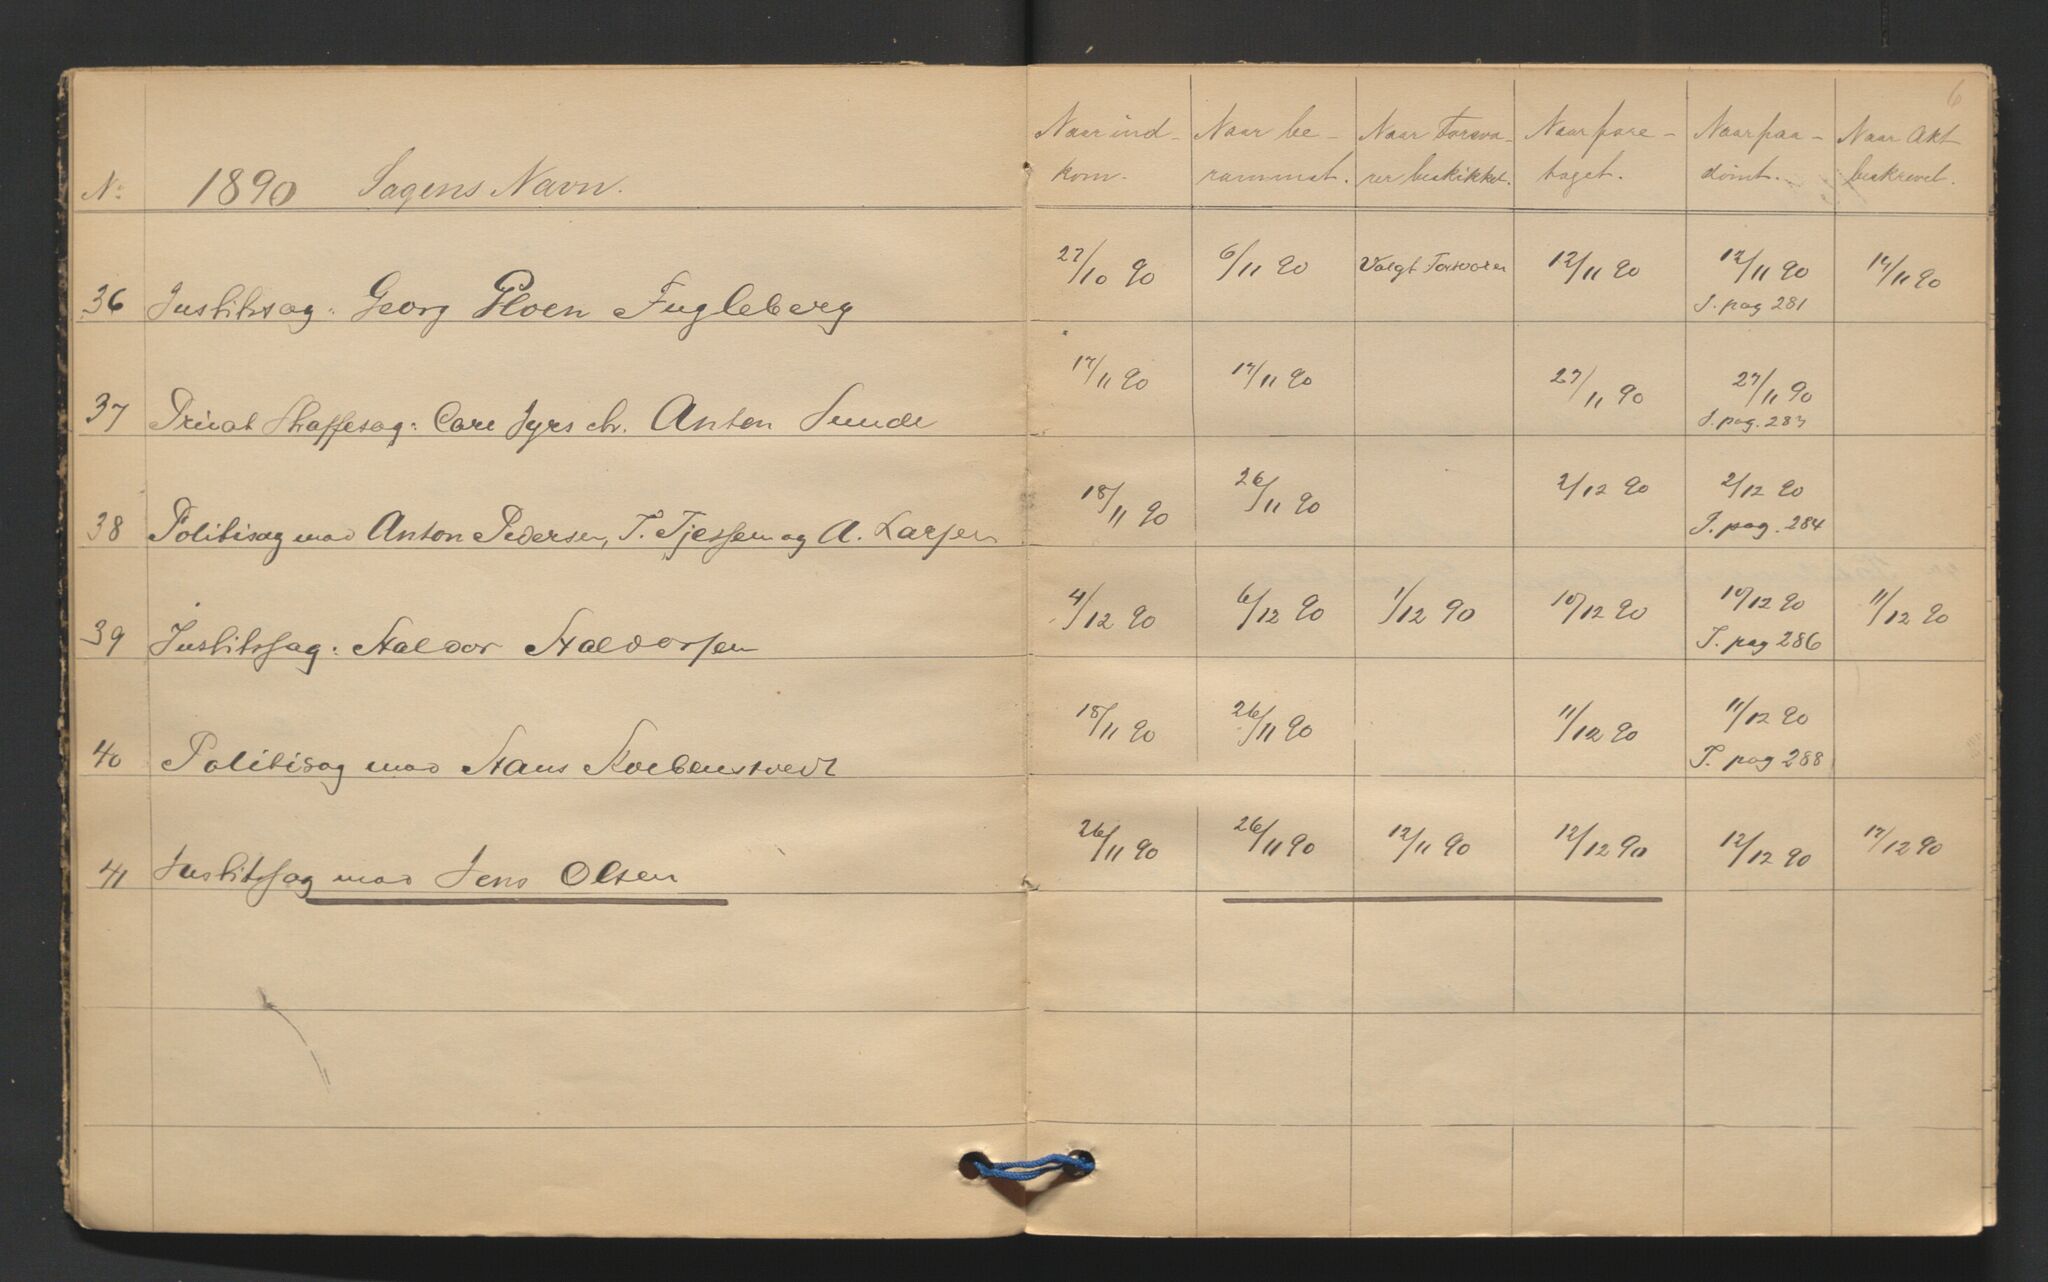 6
Naar ind- Naar be- Naar Forsva- Naar fore- Naar paa- Naar Akt
No 1890 Sagens Navn. kom. rammet. rer beskikket. taget. dömt. beskrevet.
27/10 90 6/11 90 Valgt Forsvarer 12/11 90 12/11 90 14/11 90
36 Justitssag: Georg Ploen Fugleberg J. pag 281
17/11 90 17/11 90 27/11 90 27/11 90
37 Privat Straffesag: Carl Jyrs ctr. Anton Sunde J. pag. 283
18/11 90 26/11 90 2/12 90 2/12 90
38 Politisag mod Anton Pedersen, T. Tjessem og A. Larsen J. pag. 284
4/12 90 6/12 90 1/12 90 10/12 90 10/12 90 11/12 90
39 Justitssag: Haldor Haldorsen J. pag 286
18/11 90 26/11 90 11/12 90 11/12 90
40 Politisag mod Hans J. pag 288
26/11 90 26/11 90 12/11 90 12/12 90 12/12 90 17/12 90
41 Justitssag mod Jens Olsen